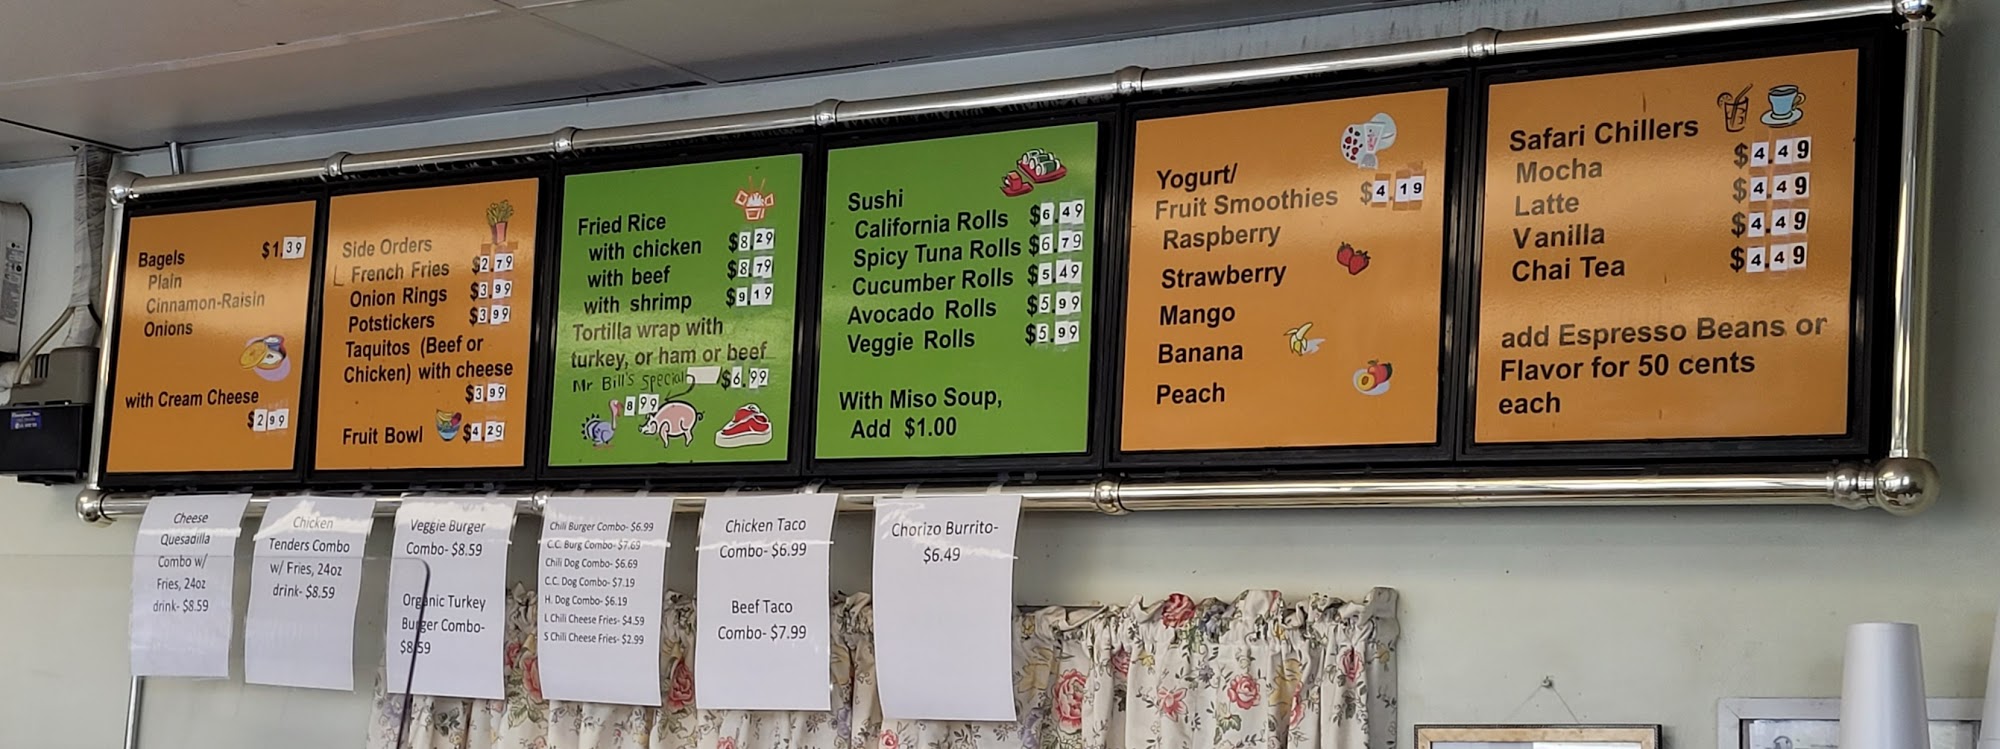 Bagels $1.39
Plain
Cinnamon-Raisin
Onions
with Cream Cheese
$2.99
Side Orders
French Fries $2.79
Onion Rings $3.99
Potstickers $3.99
Taquitos (Beef or
Chicken) with cheese
$3.99
Fruit Bowl $4.29
Fried Rice
with chicken $8.29
with beef $8.79
with shrimp $9.19
Tortilla wrap with
turkey, or ham or beef
Mr Bill's Special $6.99
8 99
Sushi
California Rolls $6.49
Spicy Tuna Rolls $6.79
Cucumber Rolls $5.49
Avocado Rolls $5.99
Veggie Rolls $5.99
With Miso Soup,
Add $1.00
Yogurt/
Fruit Smoothies $4.19
Raspberry
Strawberry
Mango
Banana
Peach
Safari Chillers
Mocha $4.49
Latte $4.49
Vanilla $4.49
Chai Tea $4.49
add Espresso Beans or
Flavor for 50 cents
each
Cheese
Quesadilla
Combo w/
Fries, 24oz
drink- $8.59
Chicken
Tenders Combo
w/ Fries, 24oz
drink- $8.59
Veggie Burger
Combo- $8.59
Organic Turkey
Burger Combo-
$8.59
Chili Burger Combo- $6.99
C.C. Burg Combo- $7.69
Chili Dog Combo- $6.69
C.C. Dog Combo- $7.19
H. Dog Combo- $6.19
L Chili Cheese Fries- $4.59
S Chili Cheese Fries- $2.99
Chicken Taco
Combo- $6.99
Beef Taco
Combo- $7.99
Chorizo Burrito-
$6.49